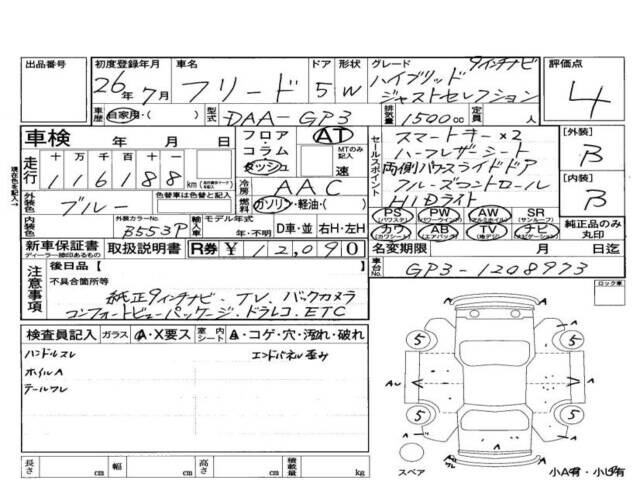 出品番号
初度登録年月
26年7月
車名
フリード
ドア
5
形状
W
グレード
9インチナビ
ハイブリッド
ジャストセレクション
評価点
4
車歴
自家用・( )
型式
DAA-GP3
排気量
1500cc
定員
人
車検 年 月 日
フロア
コラム
ダッシュ
AT
MTのみ記入
速
セールスポイント
スマートキー×2
ハーフレザーシート
両側パワースライドドア
クルーズコントロール
HIDライト
[外装]
B
[内装]
B
現在色を記入→
走行
十万千百十一
116188
km
外装色
ブルー
色替車は色替と記入
冷房
AAC
燃料
ガソリン・軽油・( )
内装色
外装カラーNo.
B553P
輸入車
モデル年式
年・不明
D車・並
右H・左H
PS
(パワステ)
PW
(パワーウインドウ)
AW
(アルミホイル)
SR
(サンルーフ)
カワ
(カワシート)
AB
(エアバック)
TV
(地デジ)
ナビ
(ナビゲーション)
純正品のみ丸印
新車保証書
ディーラー捺印あるもの
取扱説明書
R券 ¥12,090
名変期限 月 日迄
注意事項
後日品【 】
不具合箇所等
純正9インチナビ、TV、バックカメラ
コンフォートビューパッケージ・ドラレコ、ETC
車台No.
GP3-1208973
ロック車
検査員記入
ガラス
A・X要ス
室内シート
A・コゲ・穴・汚れ・破れ
ハンドルスレ
エンドパネル歪み
ホイルA
テールワレ
5
5
5
5
A
A
A
A
スペア
小A有・小U有
長さ cm
幅 cm
高さ cm
積載量 kg